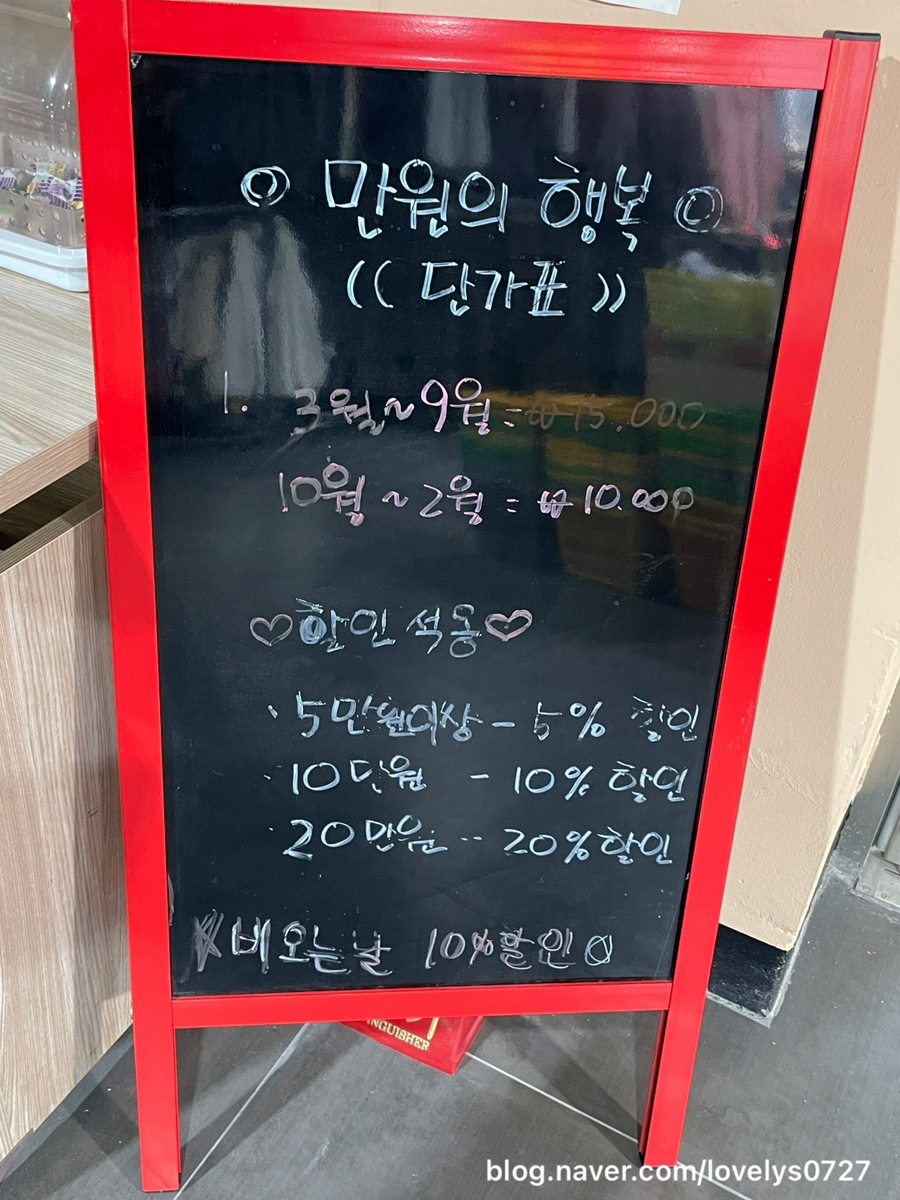 ◎ 만원의 행복 ◎
(( 단가표 ))
1. 3월~9월 = ₩15.000
10월~2월 = ₩10.000
♡할인 석동♡
· 5만원이상 - 5% 할인
· 10만원 - 10% 할인
· 20만원 -- 20% 할인
비오는날 10%할인
NGUISHER
blog.naver.com/lovelys0727